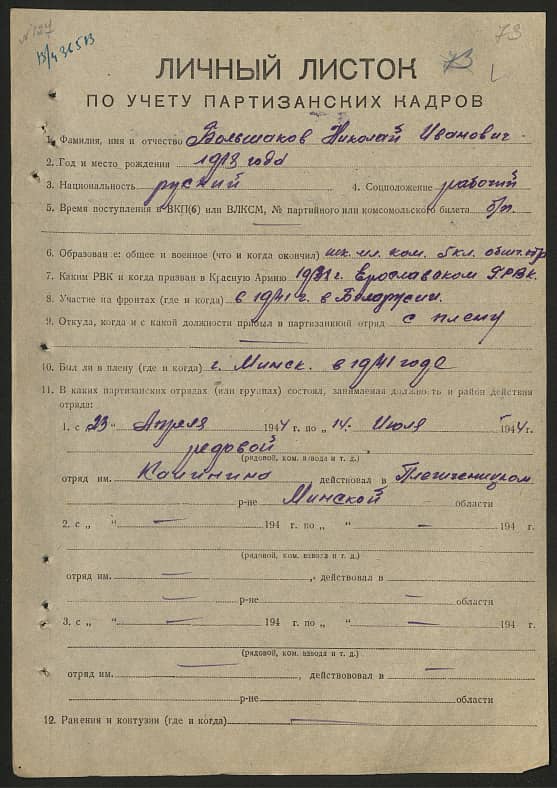 №127
13/4 36513
73
73
ЛИЧНЫЙ ЛИСТОК
ПО УЧЕТУ ПАРТИЗАНСКИХ КАДРОВ
1. Фамилия, имя и отчество Большаков Николай Иванович
2. Год и место рождения 1913 года
3. Национальность руский 4. Соцположение рабочий
5. Время поступления в ВКП(б) или ВЛКСМ, № партийного или комсомольского билета б/п.
6. Образование: общее и военное (что и когда окончил) шк. мл. ком. 6кл.
7. Каким РВК и когда призван в Красную Армию Ерославском ГРВК.
8. Участие на фронтах (где и когда) в 1941 г. в Белоруссии.
9. Откуда, когда и с какой должности прибыл в партизанский отряд с плену
10. Был ли в плену (где и когда) г. Минск. в 1941 годе
11. В каких партизанских отрядах (или группах) состоял, занимаемая должность и район действия
отряда:
1. с 23 " Апреля 1944 г. по „ 14. Июля 1944 г.
редовой
(рядовой, ком. взвода и т. д.)
отряд им. Калинина действовал в Плещеницком
р-не Минской области
2. с „ " — 194 г. по „ " — 194 г.
(рядовой, ком. взвода и т. д.)
отряд им. — , действовал в —
— р-не — области
3. с „ " — 194 г. по „ " — 194 г.
(рядовой, ком. взвода и т. д.)
отряд им. , действововал в —
р-не области
12. Ранения и контузии (где и когда) —